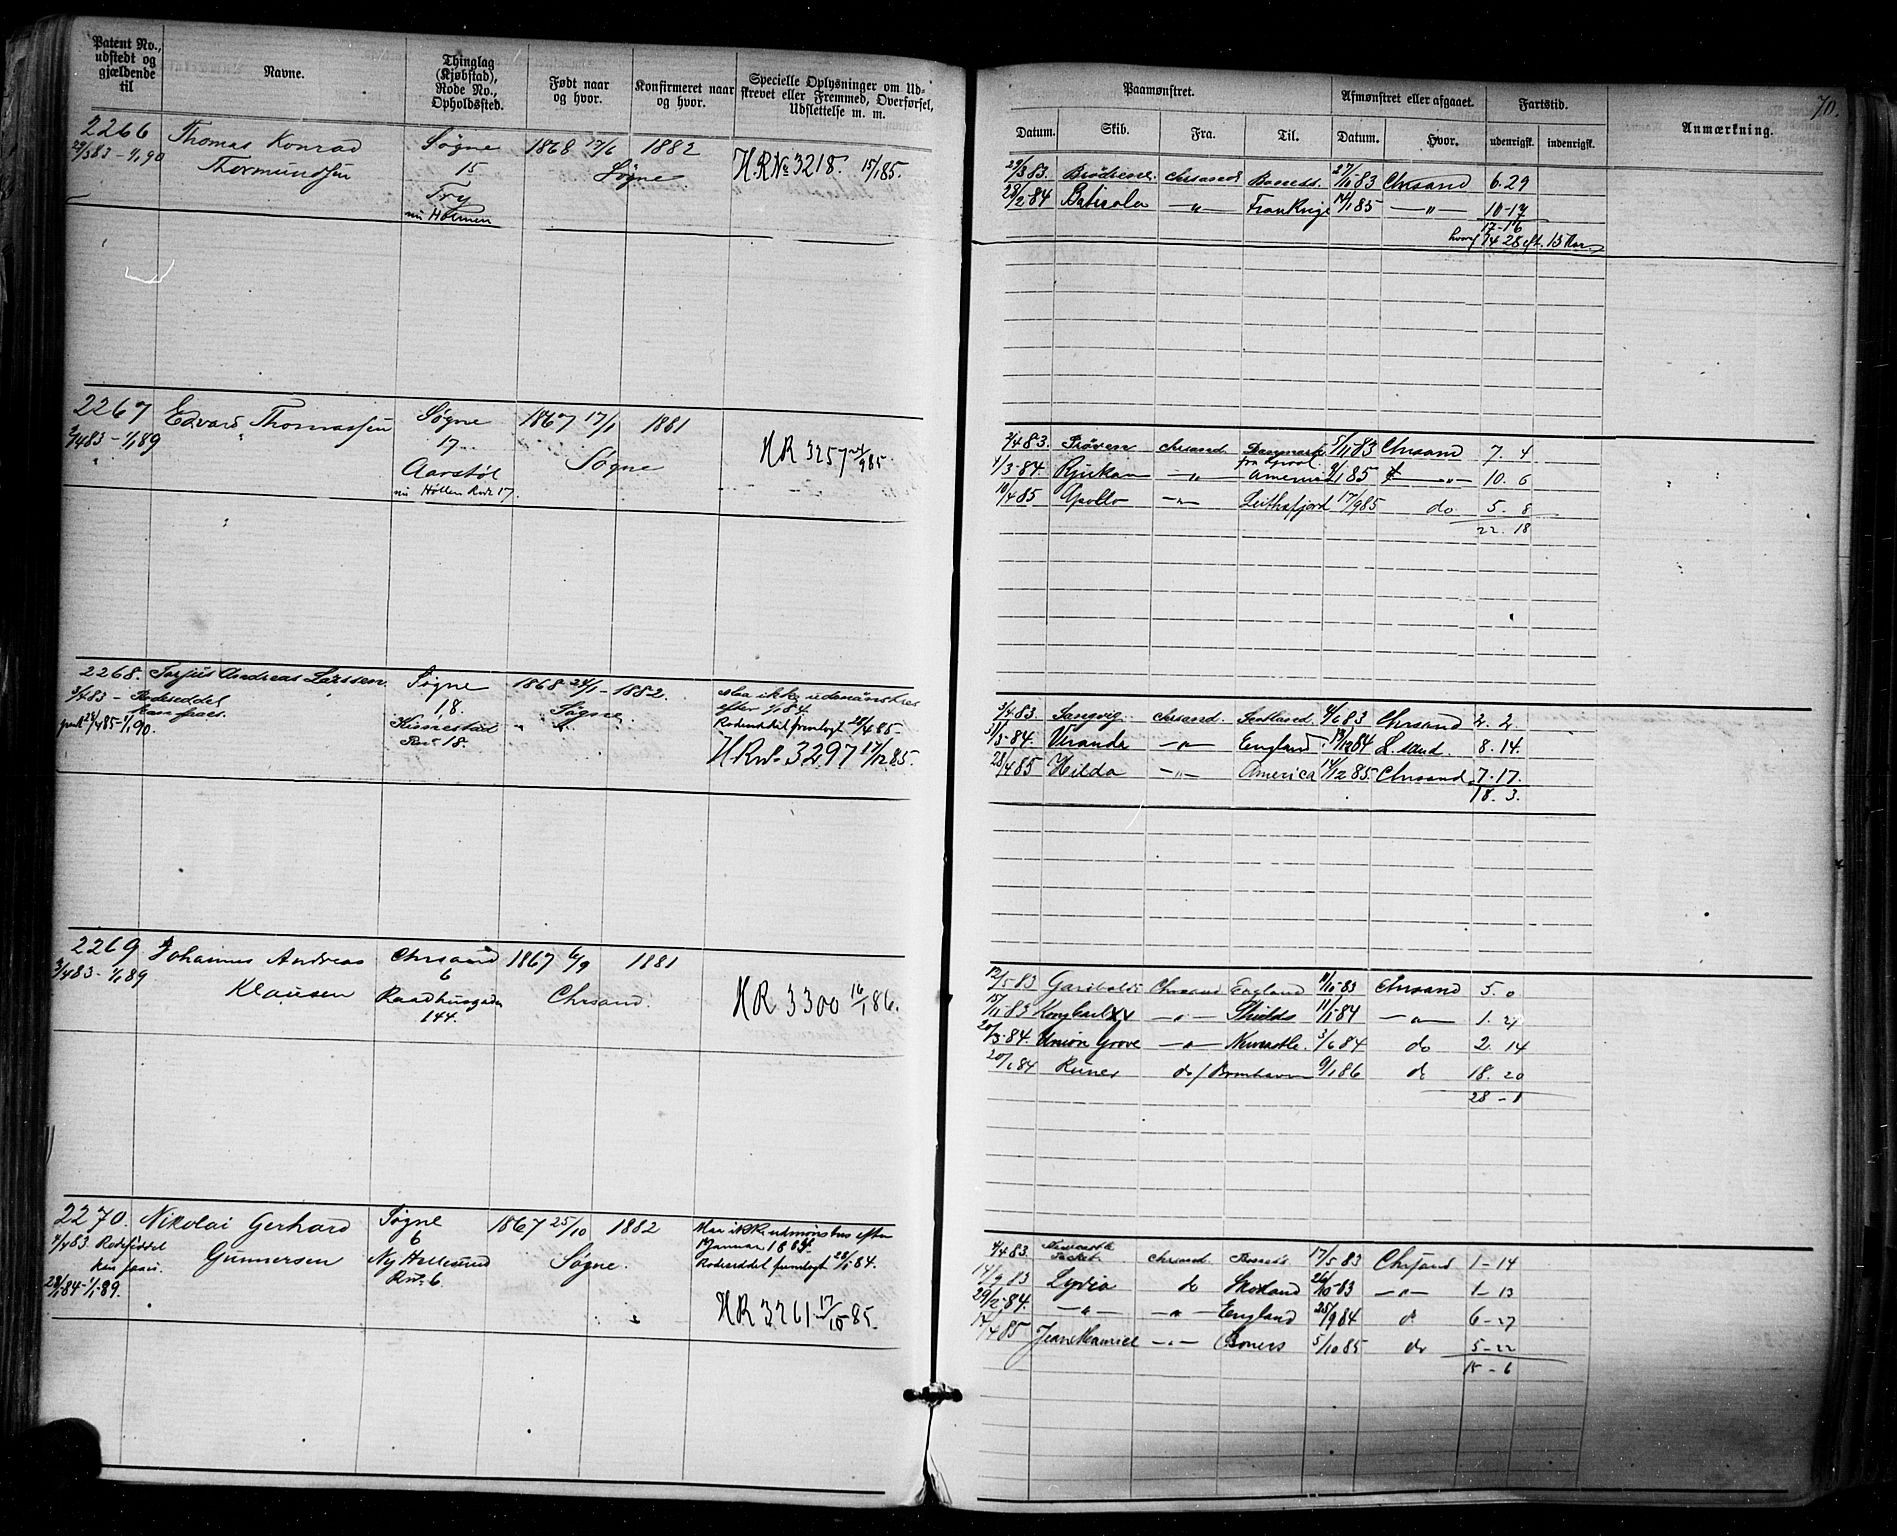 Patent No., udstedt og gjældende til
Navne.
Thinglag (Kjøbstad), Rode No., Opholdssted.
Født naar og hvor.
Konfirmeret naar og hvor.
Specielle Oplysninger om Udskrevet eller Fremmed, Overførsel, Udslettelse m. m.
Paamønstret.
Afmønstret eller afgaaet.
Fartstid.
Anmærkning.
70.
Datum.
Skib.
Fra.
Til.
Datum.
Hvor.
udenrigsk.
indenrigsk.
2266 Thomas Konrad Søgne 1868 17/6 1882
29/3 83 - 1/1 90 Thormundsen 15 Søgne H.R No 3218. 15/1 85.
Try
nu Holmen
29/3 83 Brødrene chrsand 27/11 83 Chrsand 6.29
28/2 84 " Frankrige 14/1 85 " 10-17
17-16
2267 Edvard Thomassen Søgne 1867 17/1 1881
3/4 83 - 1/1 89 17 Søgne HR 3257 /9 85.
Aarstøl
nu Høllen Rode 17.
3/4 83. Prøven chrsand Danmark 5/11 83 Chrsand 7. 4
1/3-84. Rjukan " America 9/1 85 " 10. 6
10/4 85 Apollo " Leithsfjord 17/9 85 do 5. 8
22. 18
2268. Torjus Andreas Larssen Søgne 1868 24/1 - 1882.
3/4 83 - Rodeseddel 18. Søgne. Maa ikke udmønstres
efter 1/1 84.
28/4 85 - 1/1 90. Rode 18. Rodeseddel fremlagt 28/4 85 -
H.R No 3297 17/12 85.
3/4 83. Sangvig. chrsand. Scotland. 4/6 83 Chrsand 2. 2.
31/3-84. Veranda " England. 19/12 84 8. 14.
28/4 85 Hilda " America 14/12 85. Chrsand 7. 17.
18. 3.
2269 Johannes Andreas Chrsand 1867 6/9 1881
3/4 83 - 1/1 89 Klausen 6 Chrsand. HR 3300 16/1 86.
Raadhusgaden
144.
12/5 83 Garibaldi Chrsand England 11/10 83 Chrsand 5. 0
15/11-83 Kong Carl XV " Shields 11/1 84 " 1. 27
20/3-84. Union Grove " Newcastle 3/6 84 do 2. 14
20/6 84 Runer do 9/1 86 do 18. 20
28 - 1
2270. Nikolai Gerhard Søgne 1867 25/10 1882 Maa ikke udmønstres efter
4/4 83 Rodeseddel Gunnersen 6 Søgne. Januar 1884.
Ny Hellesund Rodeseddel fremlagt 28/1 84.
28/1 84 - 1/1 89. Rode 6 HR 3261 17/10 85.
4/4 83. Newcastle Packet chrsand. 17/5 83 Chrsand 1 - 14
14/9 83 Lydia do Skotland 26/10 83 " 1 - 13
29/2-84. " " England 25/9 84 do 6 - 27
14/4 85 " 5/10 85 do 5 - 22
15 - 6